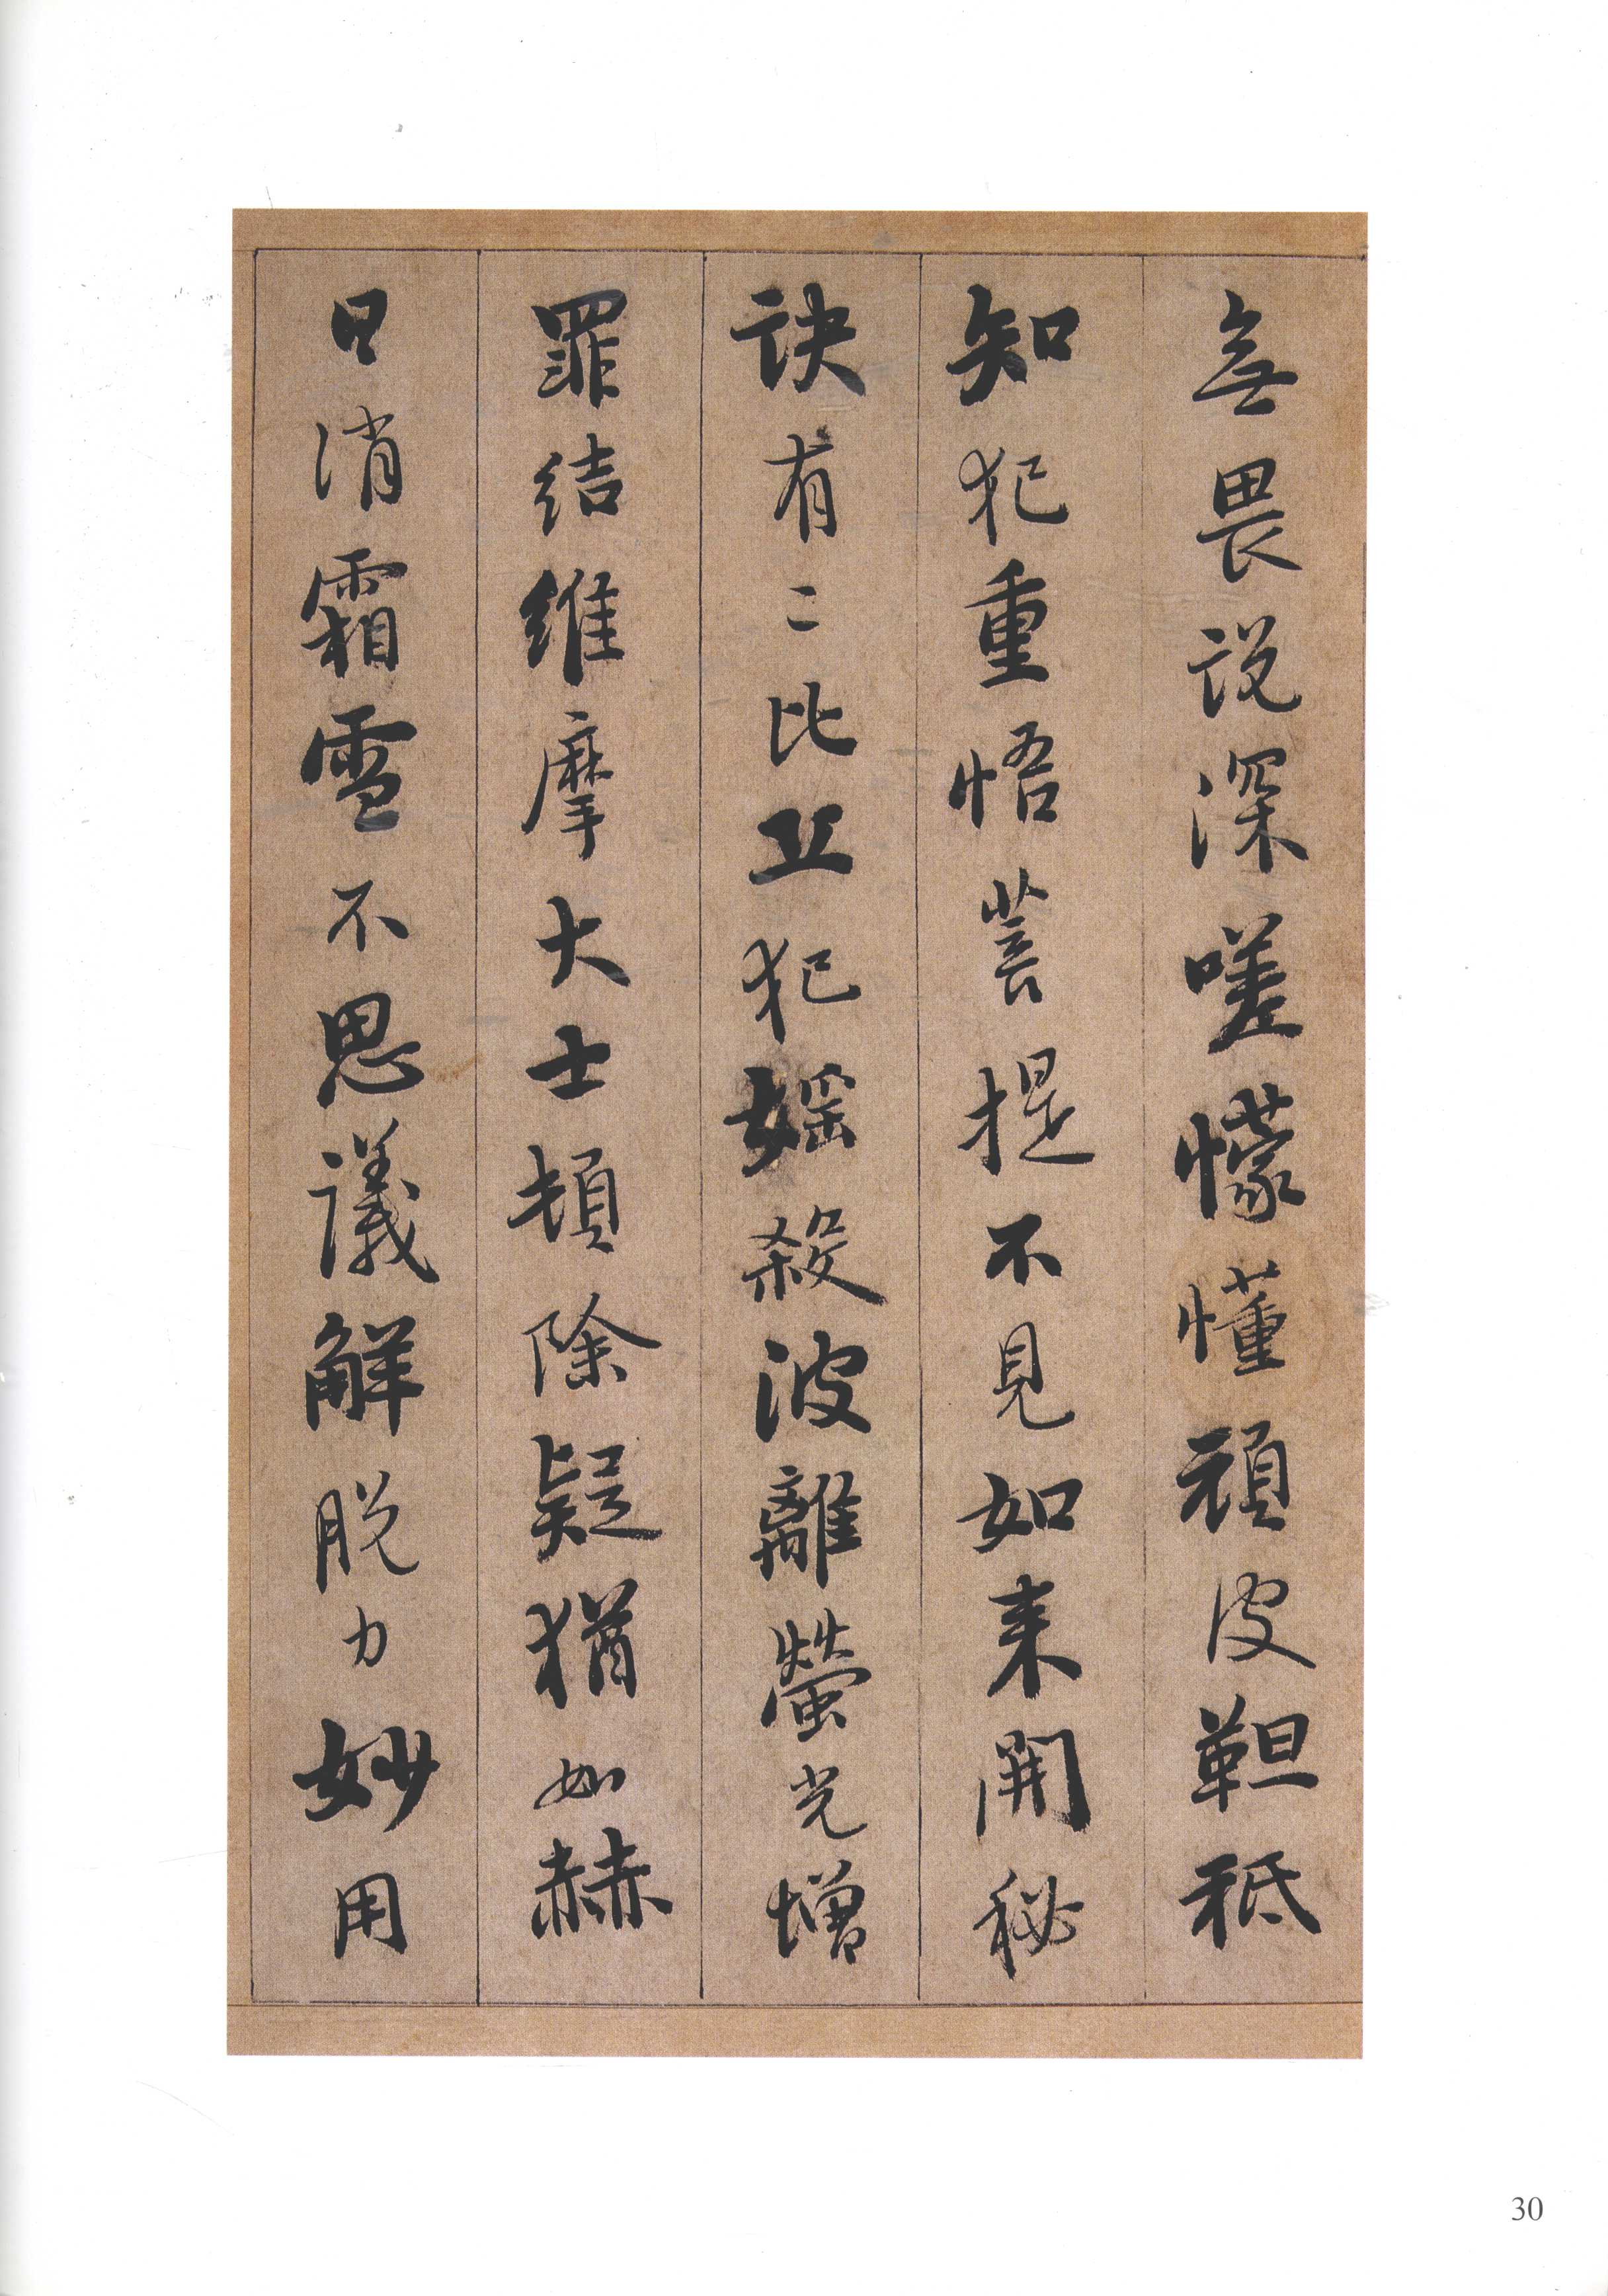 無畏説深嗟懞懂頑皮靼祗
知犯重悟菩提不見如来開秘
訣有二比丘犯婬殺波離螢光增
罪結維摩大士頓除疑猶如赫
日消霜雪不思議解脱力妙用
30